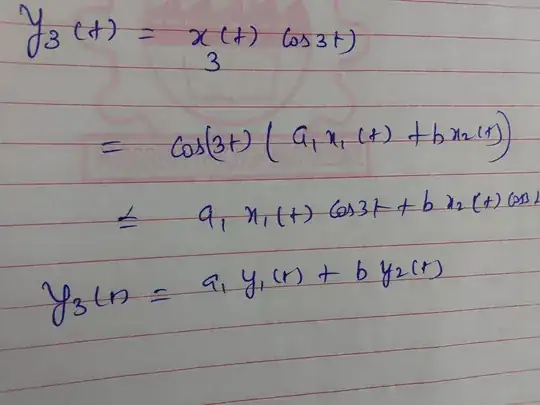 y₃(t) = x₃(t) cos3t)
= cos(3t) ( a₁x₁(t) + bx₂(t) )
= a₁ x₁(t) cos3t + b x₂(t) cos
y₃(t) = a₁ y₁(t) + b y₂(t)